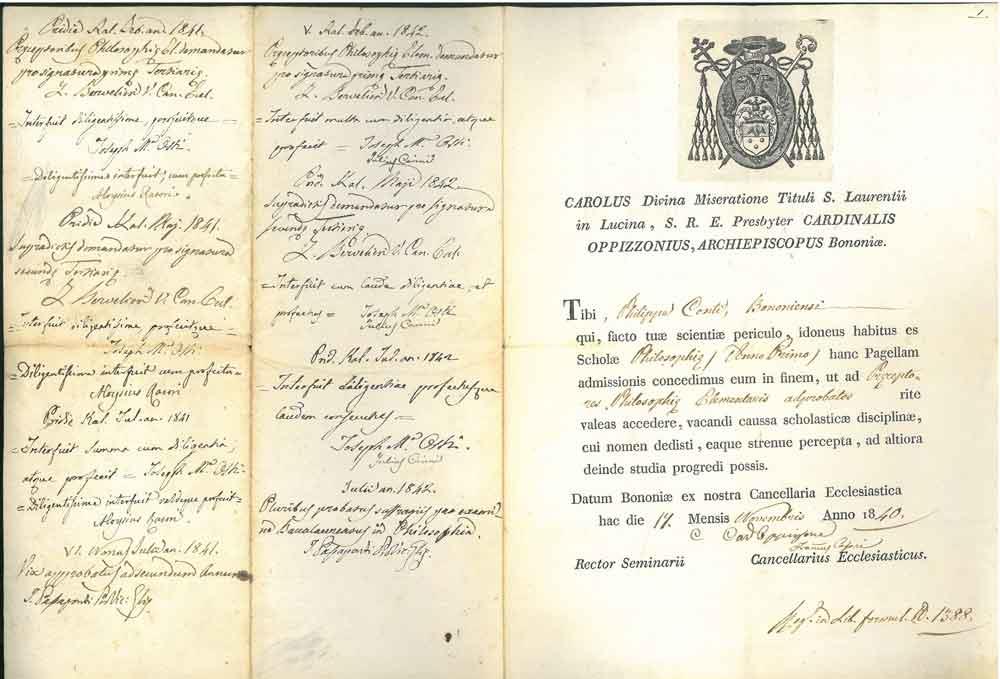 Pridie Kal. Feb. an. 1841.
Preceptoribus Philosophię El. demandatur
pro signatura primę Tertiarię.
Z. Berwelieri V. Can. Eccl.
= Interfuit diligentissime, profecitque =
Joseph M.ª
= Diligentissimes interfuit, cum profectu =
Aloysius Racori.
Pridie Kal. Maj. 1841.
Supradictis demandatur pro signatura
secundę Tertiarię
= Interfuit diligentissime, profecitque =
Joseph M.ª
= Diligentissime interfuit cum profectu =
Aloysius
Pridie Kal. Jul. an. 1841
= Interfuit summa cum diligentia,
atque profecit = Joseph M.ª
= Diligentissime interfuit valdeque profecit =
Aloysius
VI. Nonas Julii an. 1841.
Vix approbatus ad secundum Annum
V. Kal. Feb. an. 1842.
Preceptoribus Philosophię Elem. demandatur
pro signatura primę Tertiarię.
= Interfuit multa cum diligentia, atque
profecit = Joseph M.ª
Julius
Prid. Kal. Maji 1842
Supradictis demandatur pro signatura
secundę Tertiarię.
= Interfuit cum laude diligentiae, et
profectus = Joseph M.ª
Julius
Prid. Kal. Jul. an. 1842
= Interfuit diligentiae profectusque
laudem consecutus =
Joseph M.ª
Julius
Julii an. 1842.
Pluribus probatus suffragiis pro exami-
ne Baccalaureatus in Philosophia.
1.
CAROLUS Divina Miseratione Tituli S. Laurentii
in Lucina, S. R. E. Presbyter CARDINALIS
OPPIZZONIUS, ARCHIEPISCOPUS Bononiæ.
Tibi, Philippo Conti, Bononiensi
qui, facto tuæ scientiæ periculo, idoneus habitus es
Scholæ Philosophię (Anno Primo) hanc Pagellam
admissionis concedimus eum in finem, ut ad Precepto-
res Philosophię Elementaris adprobatos rite
valeas accedere, vacandi caussa scholasticæ disciplinæ,
cui nomen dedisti, eaque strenue percepta, ad altiora
deinde studia progredi possis.
Datum Bononiæ ex nostra Cancellaria Ecclesiastica
hac die 17 Mensis Novembris Anno 1840.
C. Card. Oppizzone
Rector Seminarii Cancellarius Ecclesiasticus.
Reg. in Lib. formul. D. 1388.